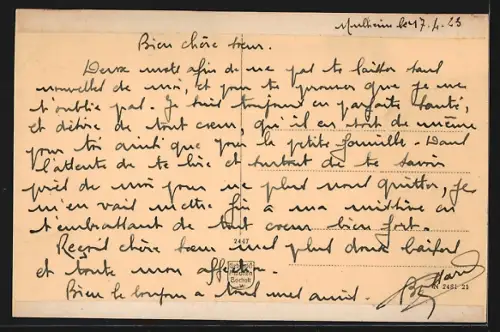 Mulheim le 17.4.25
Bien chère sœur.
Deux mots afin de ne pas te laisser sans
nouvelles de moi, et pour te prouver que je ne
t'oublie pas. Je suis toujours en parfaite santé,
et désire de tout cœur, qu'il en soit de même
pour toi ainsi que pour la petite famille. Dans
l'attente de te lire et surtout de te savoir
près de moi pour ne plus nous quitter, je
m'en vais mettre fin a ma missive en
t'embrassant de tout cœur bien fort.
Reçois chère sœur mes plus doux baisers
et toute mon affection.
Bien le bonjour a tous mes amis.
2447
2481 25